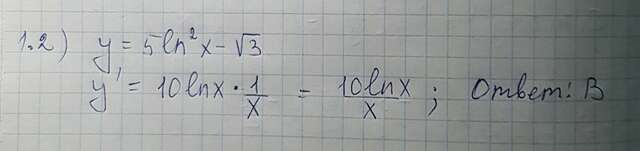 1.2) y = 5ln²x - √3
y' = 10lnx · 1/x = 10lnx/x ; Ответ: В